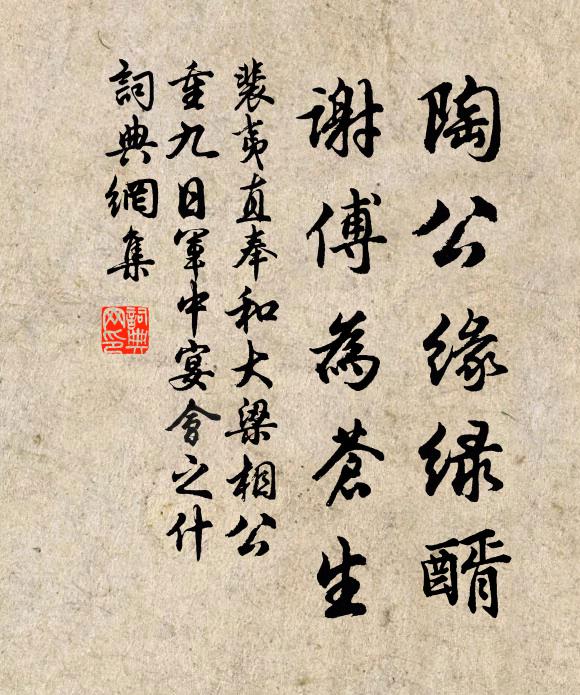 陶公緣綠醑
謝傅為蒼生
裴夷直奉和大梁相公
重九日軍中宴會之什
詞典網集
詞典網印